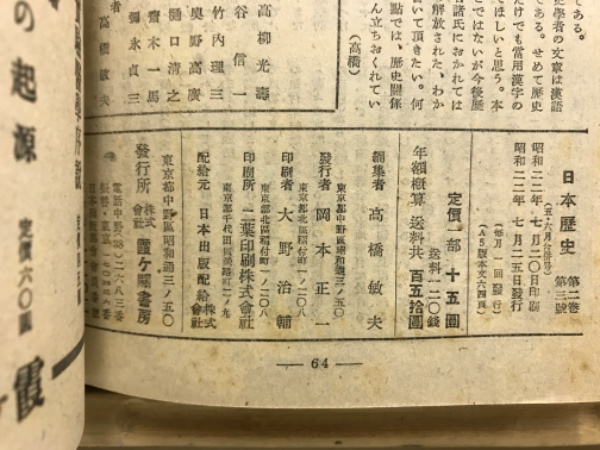 である。
史學者の文章は漢語
である。せめて歴史
だけでも當用漢字の
てほしいと思う。本
とではないが今後歴
者諸氏におかれては
解放された、わか
いて頂きたい。何
點では、歷史關係
ん立ちおくれてい
(高橋)
高柳光壽
谷信一
竹內理三
奧野高廣
樋口清之
齋木一馬
彌永貞三
者
高橋敏夫
日本歷史 第二卷 第三號
(五・六月合併号)
昭和二二年 七月二〇日印刷
昭和二二年 七月二五日發行
(毎月一回發行)
(A5版本文六四頁)
定價一部 十五圓
送料一二〇錢
年額概算 送料共 百五拾圓
編集者 高橋敏夫
東京都中野區昭和通三ノ五〇
發行者 岡本正一
東京都北區稻付町一ノ二〇八
印刷者 大野治輔
東京都北區稻付町一ノ二〇八
印刷所 二葉印刷株式會社
配給元 日本出版配給株式會社
東京都中野區昭和通三ノ五〇
發行所 株式會社 霞ケ關書房
電話中野(38)二六八三番
— 64 —
の起源 定價六〇圓
霞